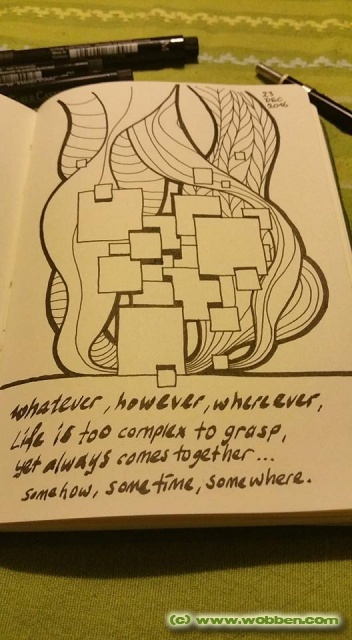 23
DEC
2016
whatever, however, whereever,
Life is too complex to grasp,
yet always comes together...
somehow, sometime, somewhere.
(c) www.wobben.com